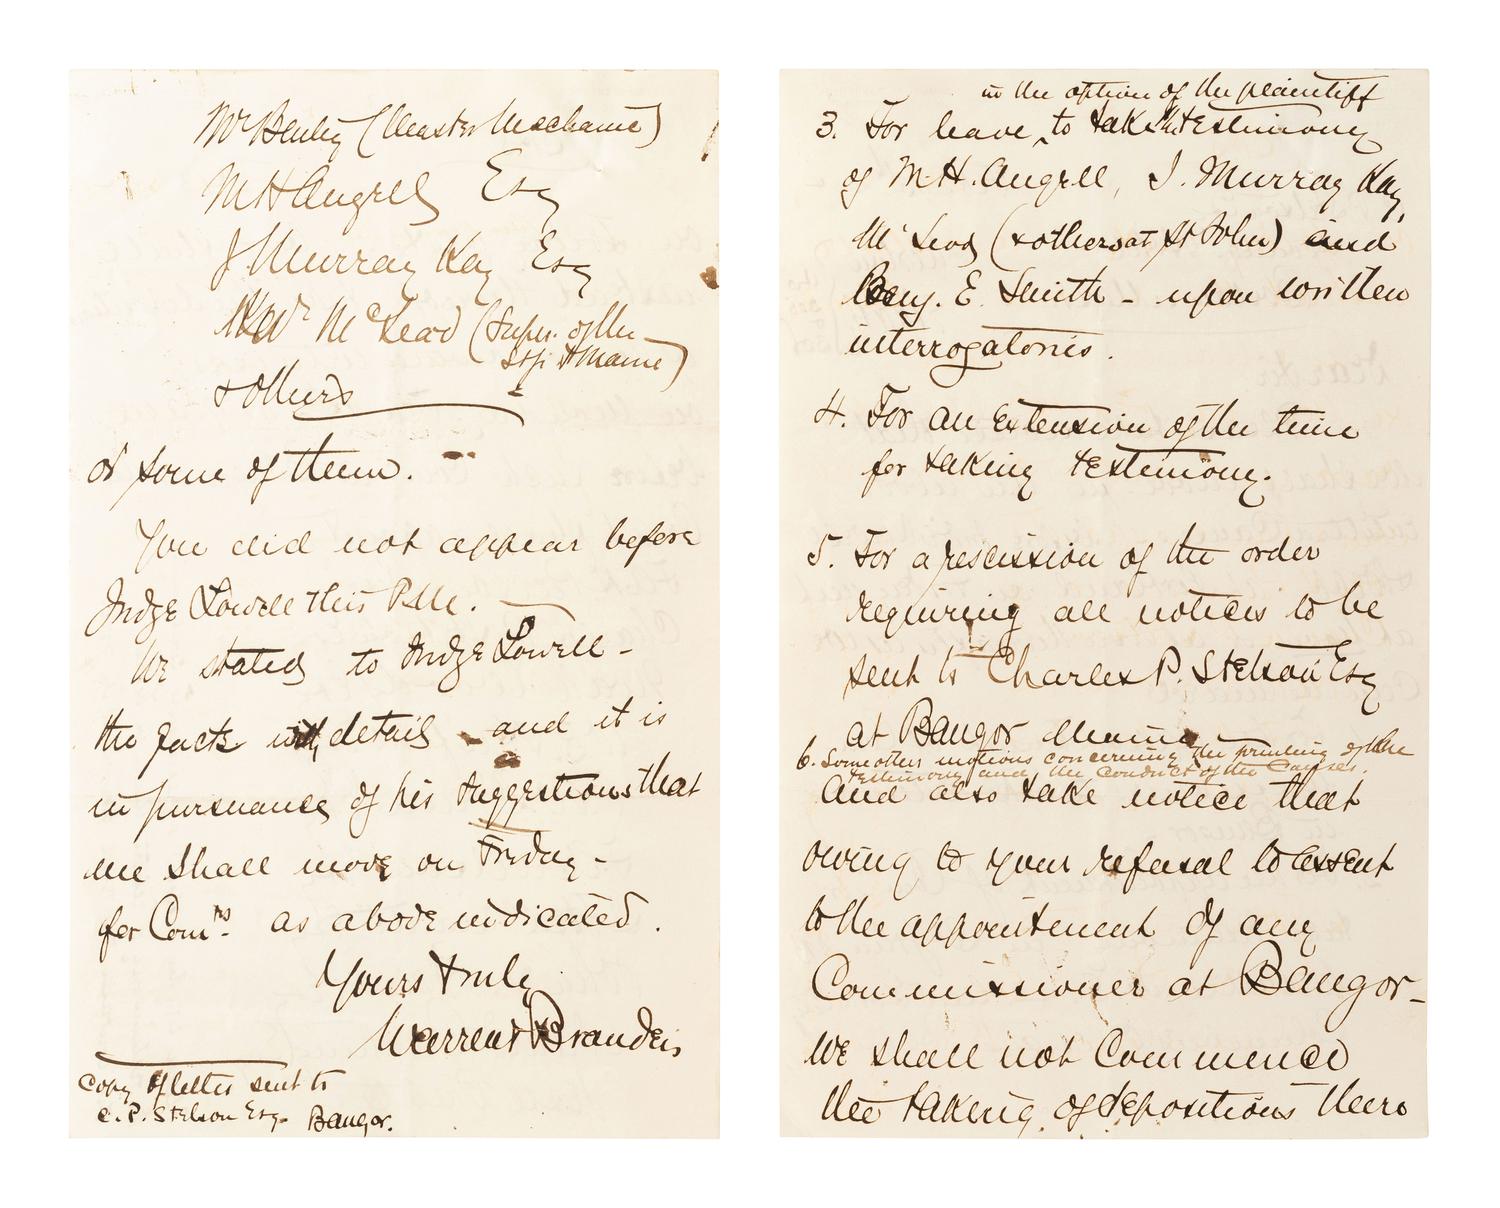 Mr Henly (Master Mechanic)
M H Angell Esq
J Murray Kay Esq
McLeod (Super. of the
St J & Maine)
& others
or some of them.
You did not appear before
Judge Lowell this P.M.
We stated to Judge Lowell -
the facts in detail - and it is
in pursuance of his suggestions that
we shall move on Friday -
for Comrs. as above indicated.
Yours truly
Warren & Brandeis
Copy of letter sent to
C. P. Stetson Esq. Bangor.
in the option of the plaintiff
3. For leave ^ to take the testimony
of M. H. Angell, J. Murray Kay,
McLeod (& others at St John) and
Benj. E. Smith - upon written
interrogatories.
4. For an extension of the time
for taking testimony.
5. For a rescission of the order
requiring all notices to be
sent to Charles P. Stetson Esq
at Bangor Maine
6. Some other motions concerning the printing of the
testimony and the conduct of the causes.
And also take notice that
owing to your refusal to assent
to the appointment of any
Commissioner at Bangor -
we shall not commence
the taking of depositions there